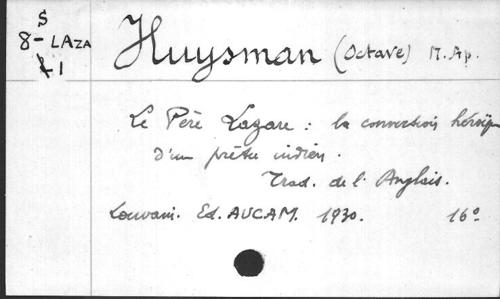 S
8-LAZA
L1
Huysman (Octave) M. Ap.
Le Père Lazare : la conversion héroïque
d'un prêtre indien.
Trad. de l'Anglais.
Louvain. Ed. AUCAM. 1930. 16º